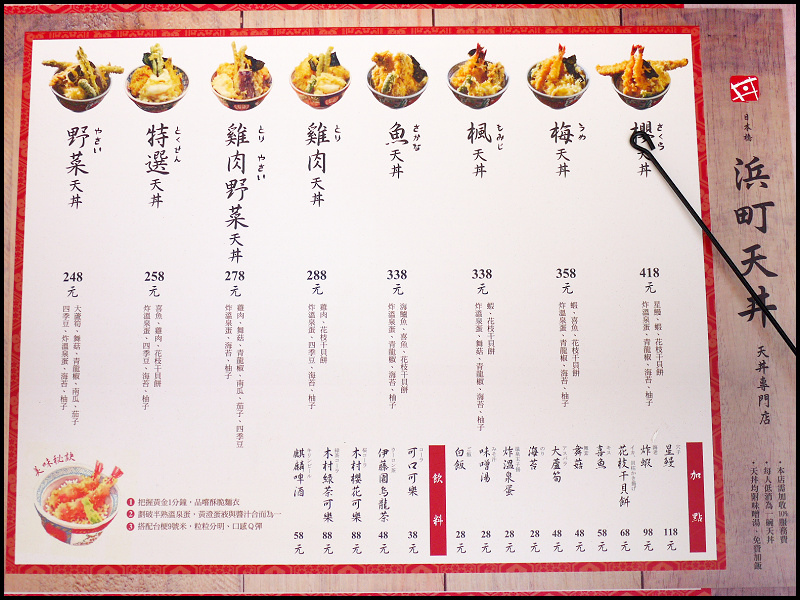 日本橋
浜町天丼
天丼專門店
・本店需加收10%服務費
・每人低消為一碗天丼
・天丼均附味噌湯，免費加飯
さくら
櫻天丼
418元
星鰻、蝦、花枝干貝餅
炸溫泉蛋、青龍椒、海苔、柚子
うめ
梅天丼
358元
蝦、喜魚、花枝干貝餅
炸溫泉蛋、青龍椒、海苔、柚子
もみじ
楓天丼
338元
蝦、花枝干貝餅
炸溫泉蛋、舞菇、青龍椒、海苔、柚子
さかな
魚天丼
338元
海鱺魚、喜魚、花枝干貝餅
炸溫泉蛋、青龍椒、海苔、柚子
とり
雞肉天丼
288元
雞肉、花枝干貝餅
炸溫泉蛋、四季豆、海苔、柚子
とり やさい
雞肉野菜天丼
278元
雞肉、舞菇、青龍椒、南瓜、茄子、四季豆
炸溫泉蛋、海苔、柚子
とくせん
特選天丼
258元
喜魚、雞肉、花枝干貝餅
炸溫泉蛋、四季豆、海苔、柚子
やさい
野菜天丼
248元
大蘆筍、舞菇、青龍椒、南瓜、茄子
四季豆、炸溫泉蛋、海苔、柚子
加點
星鰻 118元
炸蝦 98元
花枝干貝餅 68元
喜魚 58元
舞菇 48元
大蘆筍 48元
海苔 28元
炸溫泉蛋 28元
味噌湯 28元
白飯 28元
飲料
可口可樂 38元
伊藤園烏龍茶 48元
木村櫻花可樂 88元
木村綠茶可樂 88元
麒麟啤酒 58元
美味秘訣
1 把握黃金1分鐘，品嚐酥脆麵衣
2 劃破半熟溫泉蛋，黃澄蛋液與醬汁合而為一
3 搭配台梗9號米，粒粒分明、口感Q彈